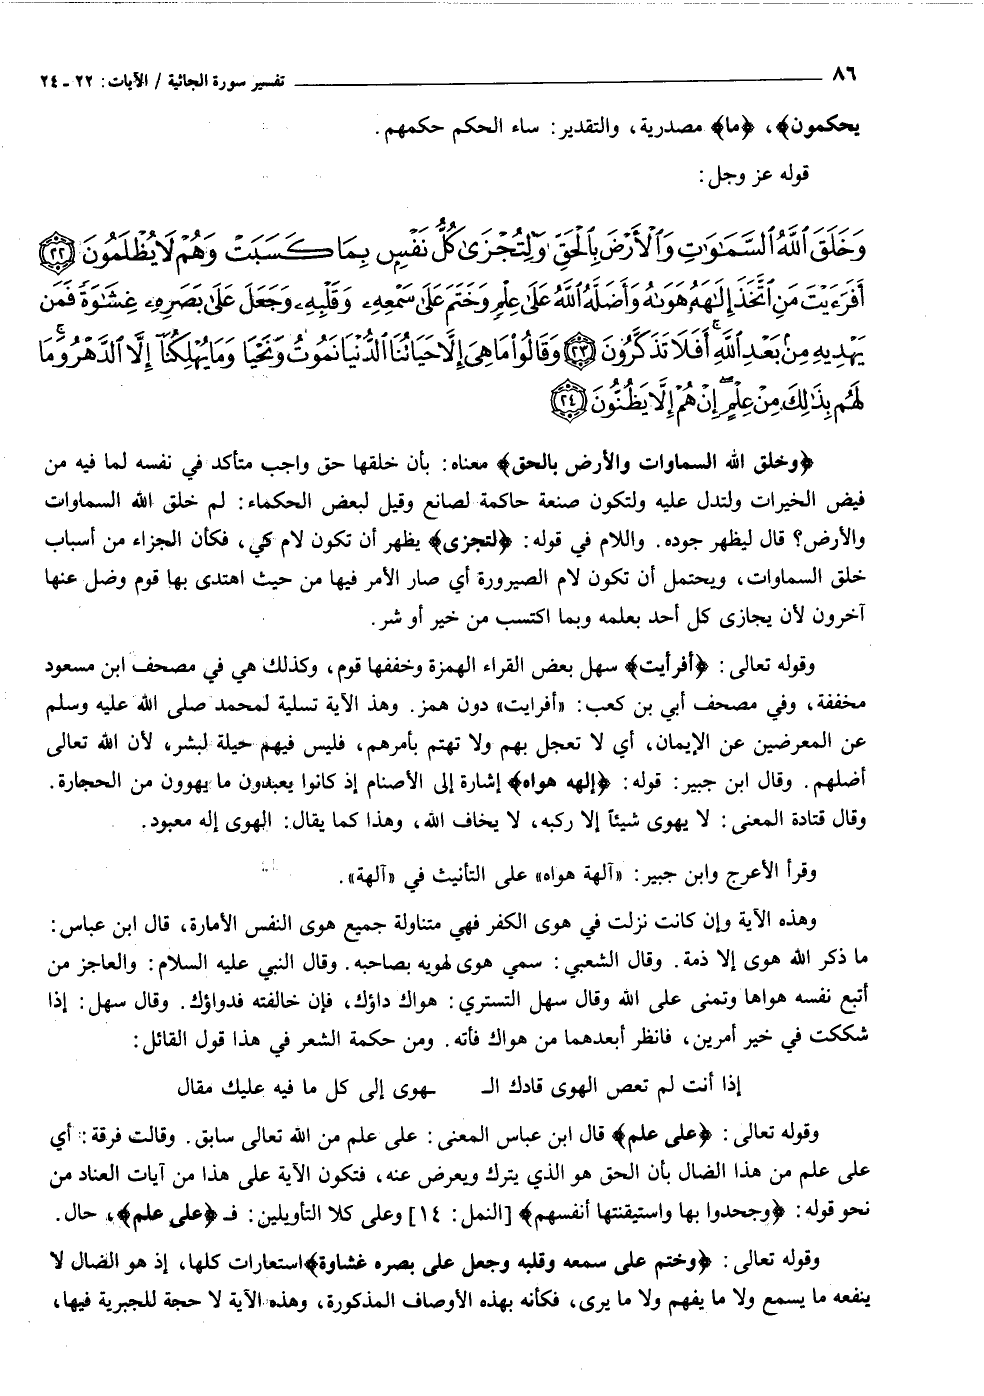 ٨٦ تفسير سورة الجاثية / الآيات: ٢٢ ـ ٢٤
يحكمون﴾، ﴿ما﴾ مصدرية، والتقدير: ساء الحكم حكمهم.
قوله عز وجل:
وَخَلَقَ ٱللَّهُ ٱلسَّمَٰوَٰتِ وَٱلْأَرْضَ بِٱلْحَقِّ وَلِتُجْزَىٰ كُلُّ نَفْسٍۭ بِمَا كَسَبَتْ وَهُمْ لَا يُظْلَمُونَ ﴿٢٢﴾
أَفَرَءَيْتَ مَنِ ٱتَّخَذَ إِلَٰهَهُۥ هَوَىٰهُ وَأَضَلَّهُ ٱللَّهُ عَلَىٰ عِلْمٍ وَخَتَمَ عَلَىٰ سَمْعِهِۦ وَقَلْبِهِۦ وَجَعَلَ عَلَىٰ بَصَرِهِۦ غِشَٰوَةً فَمَن
يَهْدِيهِ مِنۢ بَعْدِ ٱللَّهِ ۚ أَفَلَا تَذَكَّرُونَ ﴿٢٣﴾ وَقَالُوا۟ مَا هِىَ إِلَّا حَيَاتُنَا ٱلدُّنْيَا نَمُوتُ وَنَحْيَا وَمَا يُهْلِكُنَآ إِلَّا ٱلدَّهْرُ ۚ وَمَا
لَهُم بِذَٰلِكَ مِنْ عِلْمٍ ۖ إِنْ هُمْ إِلَّا يَظُنُّونَ ﴿٢٤﴾
﴿وخلق الله السماوات والأرض بالحق﴾ معناه: بأن خلقها حق واجب متأكد في نفسه لما فيه من
فيض الخيرات ولتدل عليه ولتكون صنعة حاكمة لصانع وقيل لبعض الحكماء: لم خلق الله السماوات
والأرض؟ قال ليظهر جوده. واللام في قوله: ﴿لتجزى﴾ يظهر أن تكون لام كي، فكأن الجزاء من أسباب
خلق السماوات، ويحتمل أن تكون لام الصيرورة أي صار الأمر فيها من حيث اهتدى بها قوم وضل عنها
آخرون لأن يجازى كل أحد بعلمه وبما اكتسب من خير أو شر.
وقوله تعالى: ﴿أفرأيت﴾ سهل بعض القراء الهمزة وخففها قوم، وكذلك هي في مصحف ابن مسعود
مخففة، وفي مصحف أبي بن كعب: «أفرايت» دون همز. وهذ الآية تسلية لمحمد صلى الله عليه وسلم
عن المعرضين عن الإيمان، أي لا تعجل بهم ولا تهتم بأمرهم، فليس فيهم حيلة لبشر، لأن الله تعالى
أضلهم. وقال ابن جبير: قوله: ﴿إلهه هواه﴾ إشارة إلى الأصنام إذ كانوا يعبدون ما يهوون من الحجارة.
وقال قتادة المعنى: لا يهوى شيئاً إلا ركبه، لا يخاف الله، وهذا كما يقال: الهوى إله معبود.
وقرأ الأعرج وابن جبير: «آلهة هواه» على التأنيث في «آلهة».
وهذه الآية وإن كانت نزلت في هوى الكفر فهي متناولة جميع هوى النفس الأمارة، قال ابن عباس:
ما ذكر الله هوى إلا ذمة. وقال الشعبي: سمي هوى لهويه بصاحبه. وقال النبي عليه السلام: والعاجز من
أتبع نفسه هواها وتمنى على الله وقال سهل التستري: هواك داؤك، فإن خالفته فدواؤك. وقال سهل: إذا
شككت في خير أمرين، فانظر أبعدهما من هواك فأته. ومن حكمة الشعر في هذا قول القائل:
إذا أنت لم تعص الهوى قادك الـ ـهوى إلى كل ما فيه عليك مقال
وقوله تعالى: ﴿على علم﴾ قال ابن عباس المعنى: على علم من الله تعالى سابق. وقالت فرقة: أي
على علم من هذا الضال بأن الحق هو الذي يترك ويعرض عنه، فتكون الآية على هذا من آيات العناد من
نحو قوله: ﴿وجحدوا بها واستيقنتها أنفسهم﴾ [النمل: ١٤] وعلى كلا التأويلين: فـ ﴿على علم﴾، حال.
وقوله تعالى: ﴿وختم على سمعه وقلبه وجعل على بصره غشاوة﴾استعارات كلها، إذ هو الضال لا
ينفعه ما يسمع ولا ما يفهم ولا ما يرى، فكأنه بهذه الأوصاف المذكورة، وهذه الآية لا حجة للجبرية فيها،